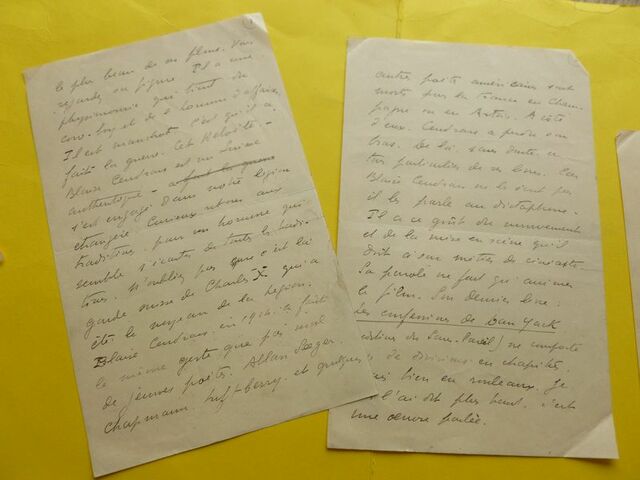 le plus beau de ses films. Vous
regardez sa figure. Il a une
physionomie qui tient du
cow-boy et de l'homme d'affaires
Il est manchot. C'est qu'il a
fait la guerre. Cet Helvète -
Blaise Cendrars est un Suisse
authentique - a fait la guerre
s'est engagé dans notre légion
étrangère. Curieux retour aux
traditions, pour un homme qui
semble s'écarter de toutes les tradi-
tions. N'oublions pas que c'est la
garde suisse de Charles X qui a
été le noyau de la légion.
Blaise Cendrars, en 1914, a fait
le même geste que
de jeunes poètes. Allan Seeger
Chapmann, et quelques
autres poètes américains sont
morts sur la France en Cham-
pagne ou en Artois. A côté
d'eux. Cendrars a perdu un
bras. De là, sans doute, un
très particulier de ses livres. Car
Blaise Cendrars ne les écrit pas
il les parle au dictaphone.
Il a ce goût du mouvement
et de la mise en scène qu'il
doit à son métier de cinéaste.
Sa parole ne fait qu'animer
le film. Son dernier livre:
Les confessions de Dan Yack
du Sans-Pareil) ne comporte
de divisions en chapitres,
bien en rouleaux. Je
l'ai dit plus haut, c'est
une œuvre parlée.